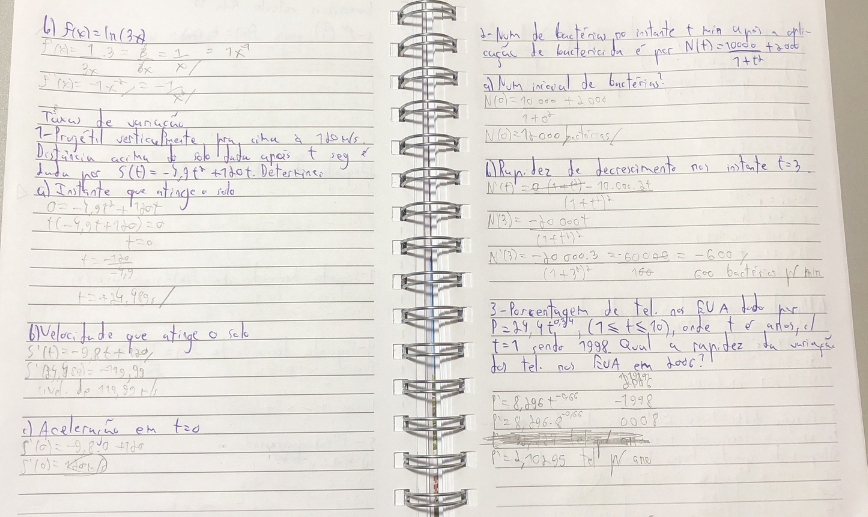 b) f(x) = ln(3x)
f'(x) = 1 . 3 = 3 = 1 = 1x⁻¹
3x 3x x
f''(x) = -1x⁻² = -1
x²
Taxas de variação
1- Projétil verticalmente pra cima à 120 m/s.
Distância acima do solo dada após t seg é
dada por S(t) = -4,9t² + 120t. Determine:
a) Instante que atinge o solo
0 = -4,9t² + 120t
t(-4,9t + 120) = 0
t = 0
t = -120
-4,9
t = +24,489s
b) Velocidade que atinge o solo
S'(t) = -9,8t + 120
= -119,99
119,99 m/s
c) Aceleração em t=0
S'(0) = -9,8.0 + 120
S'(0) =
2- Num de bactérias no instante t min após a apli-
cação de bactericida é por N(t) = 10000 + 2000
1+t²
a) Num inicial de bactérias?
N(0) = 10 000 + 2000
1+0²
N(0) = 12000 bactérias
b) Rapidez de decrescimento nos instante t=3
N'(t) = 0.(1+t²) - 10.000.2t
(1+t²)²
N'(3) = -20 000t
(1+t²)²
N'(3) = -20 000.3 = -60000 = -600
(1+3²)² 100 600 bactérias p/ min
3- Porcentagem de tel. nos EUA dado por
P = 24,4t^0,34, (1 ≤ t ≤ 10), onde t é anos, c/
t=1 sendo 1998. Qual a rapidez da variação
dos tel. nos EUA em 2006?
P' = 8,296t^-0,66 -1998
P' = 8,296.8^-0,66 0008
P' = 2,10295 tel p/ ano